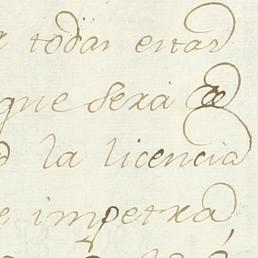 todas estas
que sera de
la licencia
impetra,